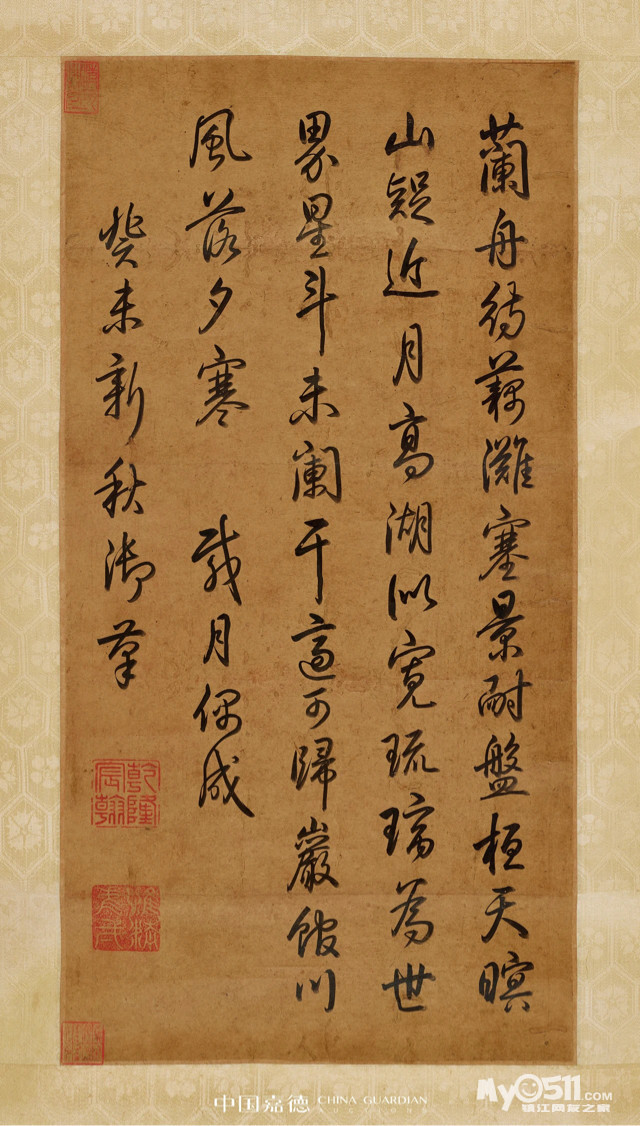 蘭舟待藕灘塞景耐盤桓天暝
山疑近月高湖似寬琉璃為世
界星斗未闌干適可歸巖館川
風落夕寒 載月偶成
癸未新秋御筆
乾隆宸翰
中国嘉德 CHINA GUARDIAN AUCTIONS
My0511.COM
镇江网友之家